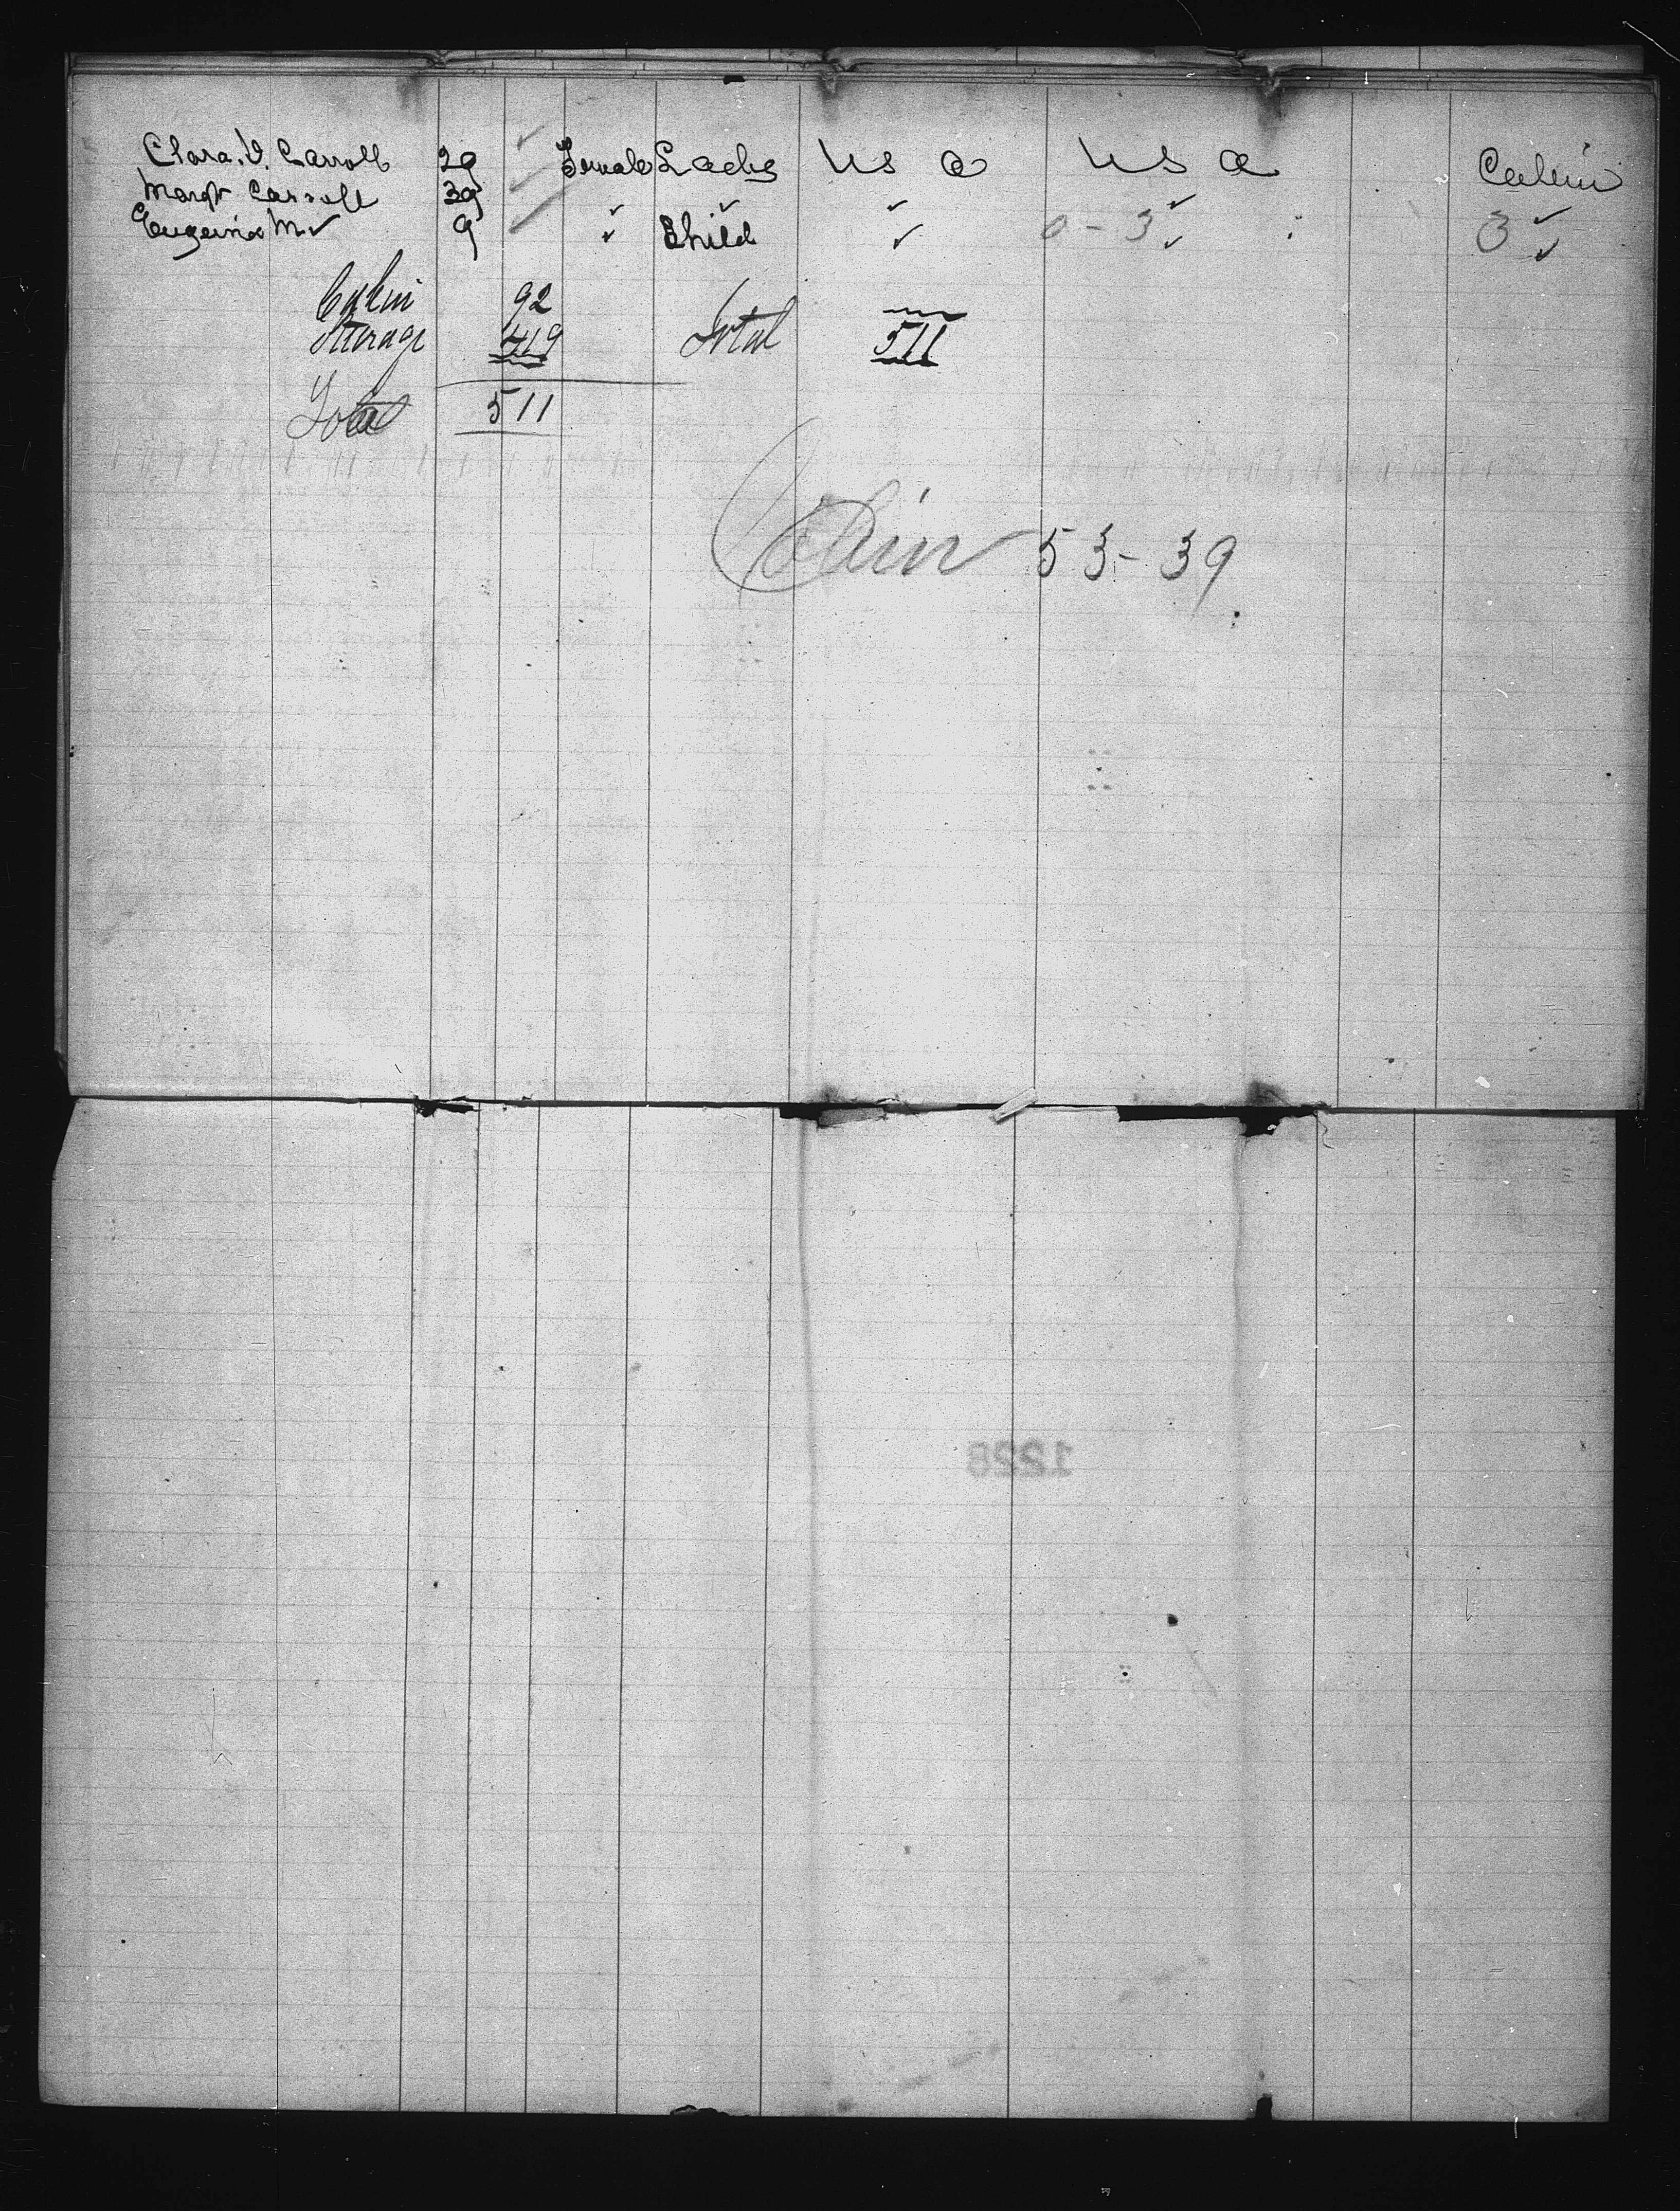 Clara. V. Carroll 29 ✓ Female Lady U S A U S A Cabin
Margt Carroll 39 ✓ ✓ ✓ ✓ ✓ ✓
Eugenia M ✓ 9 ✓ ✓ Child ✓ 0-3 ✓ 3 ✓
Cabin 92
Steerage 419 Total 511
Total 511
Cabin 53-39
1228